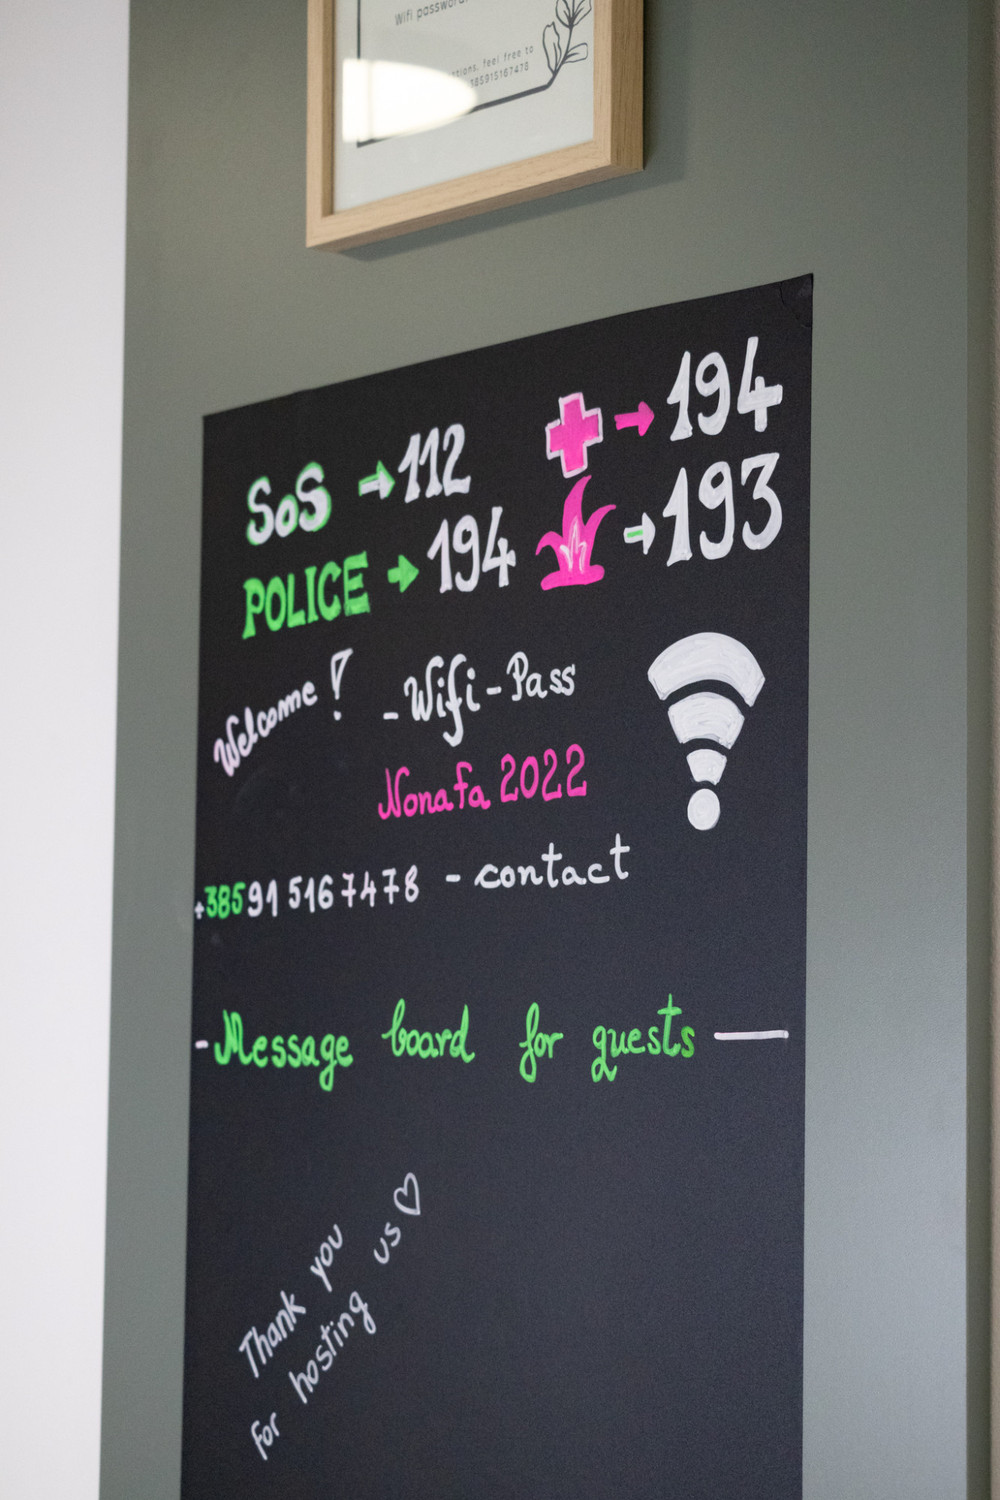 Wifi password:
tions, feel free to
385915167478
SoS → 112
POLICE → 194
→ 194
→ 193
Welcome!
- Wifi - Pass
Nonafa 2022
+385 91 516 7478 - contact
- Message board for guests —
Thank you
for hosting us ♡